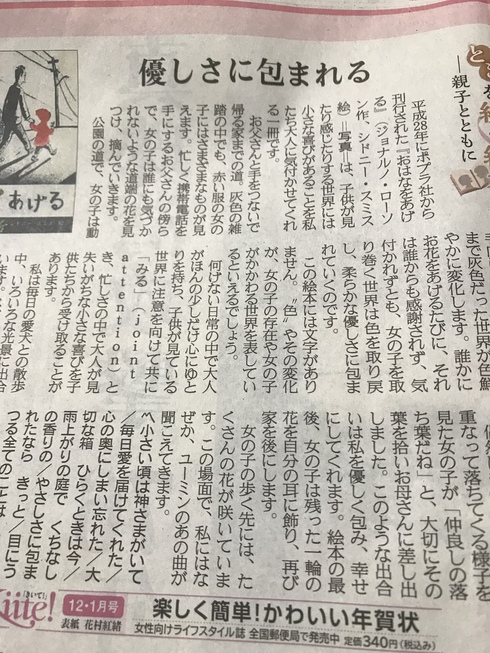 優しさに包まれる
―親子とともに
あげる
平成28年にポプラ社から
刊行された『おはなをあげ
る』(ジョナルノ・ローソ
ン作、シドニー・スミス
絵)=写真=は、子供が見
たり感じたりする世界には
小さな喜びがあることを私
たち大人に気付かせてくれ
る一冊です。
お父さんと手をつないで
帰る家までの道。灰色の雑
踏の中でも、赤い服の女の
子にはさまざまなものが見
えます。忙しく携帯電話を
手にするお父さんの傍ら
で、女の子は誰にも気づか
れないような道端の花を見
つけ、摘んでいきます。
公園の道で、女の子は動
まで灰色だった世界が色鮮
やかに変化します。誰かに
お花をあげるたびに、それ
は誰からも感謝されず、気
付かれずとも、女の子を取
り巻く世界は色を取り戻
し、柔らかな優しさに包ま
れていくのです。
この絵本には文字があり
ません。“色”やその変化
が、女の子の存在や女の子
がかかわる世界を表してい
るといえるでしょう。
何げない日常の中で大人
がほんの少しだけ心にゆと
りを持ち、子供が見ている
世界に注意を向けて共に
「みる」(joint
attention)と
き、忙しさの中で大人が見
失いがちな小さな喜びを子
供たちから受け取ることが
あります。
私は毎日の愛犬との散歩
中、いろいろな光景に出合
います。
重なって落ちてくる様子を
見た女の子が「仲良しの落
ち葉だね」と、大切にその
葉を拾いお母さんに差し出
しました。このような出合
いは私を優しく包み、幸せ
にしてくれます。絵本の最
後、女の子は残った一輪の
花を自分の耳に飾り、再び
家を後にします。
女の子の歩く先には、た
くさんの花が咲いていま
す。この場面で、私にはな
ぜか、ユーミンのあの曲が
聞こえてきます。
へ小さい頃は神さまがいて
/毎日愛を届けてくれた/
心の奥にしまい忘れた/大
切な箱 ひらくときは今/
雨上がりの庭で くちなし
の香りの/やさしさに包ま
れたなら きっと/目にう
つる全てのことは
Kiite!
12・1月号
表紙 花村紅緒
楽しく簡単!かわいい年賀状
女性向けライフスタイル誌 全国郵便局で発売中 定価340円(税込み)